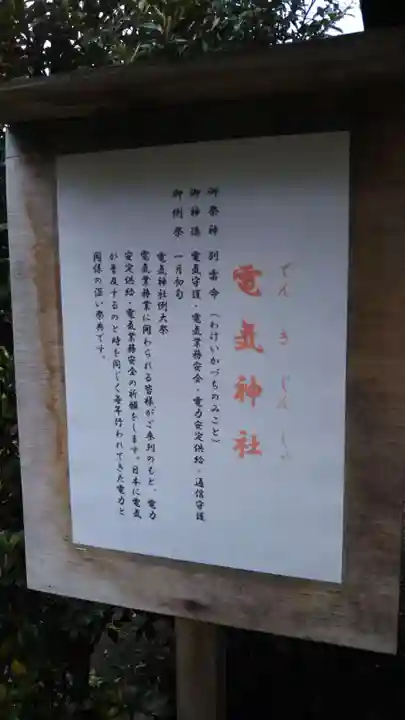 でんきじんじゃ
電気神社
御祭神　別雷命（わけいかづちのみこと）
御神徳　電気守護・電気業務安全・電力安定供給・通信守護
御例祭　一月初旬
電気神社例大祭
電気業務業に関わられる皆様がご参列のもと、電力
安定供給・電気業務安全の祈願をします。日本に電気
が普及するのと時を同じく毎年行われてきた電力と
関係の深い祭典です。